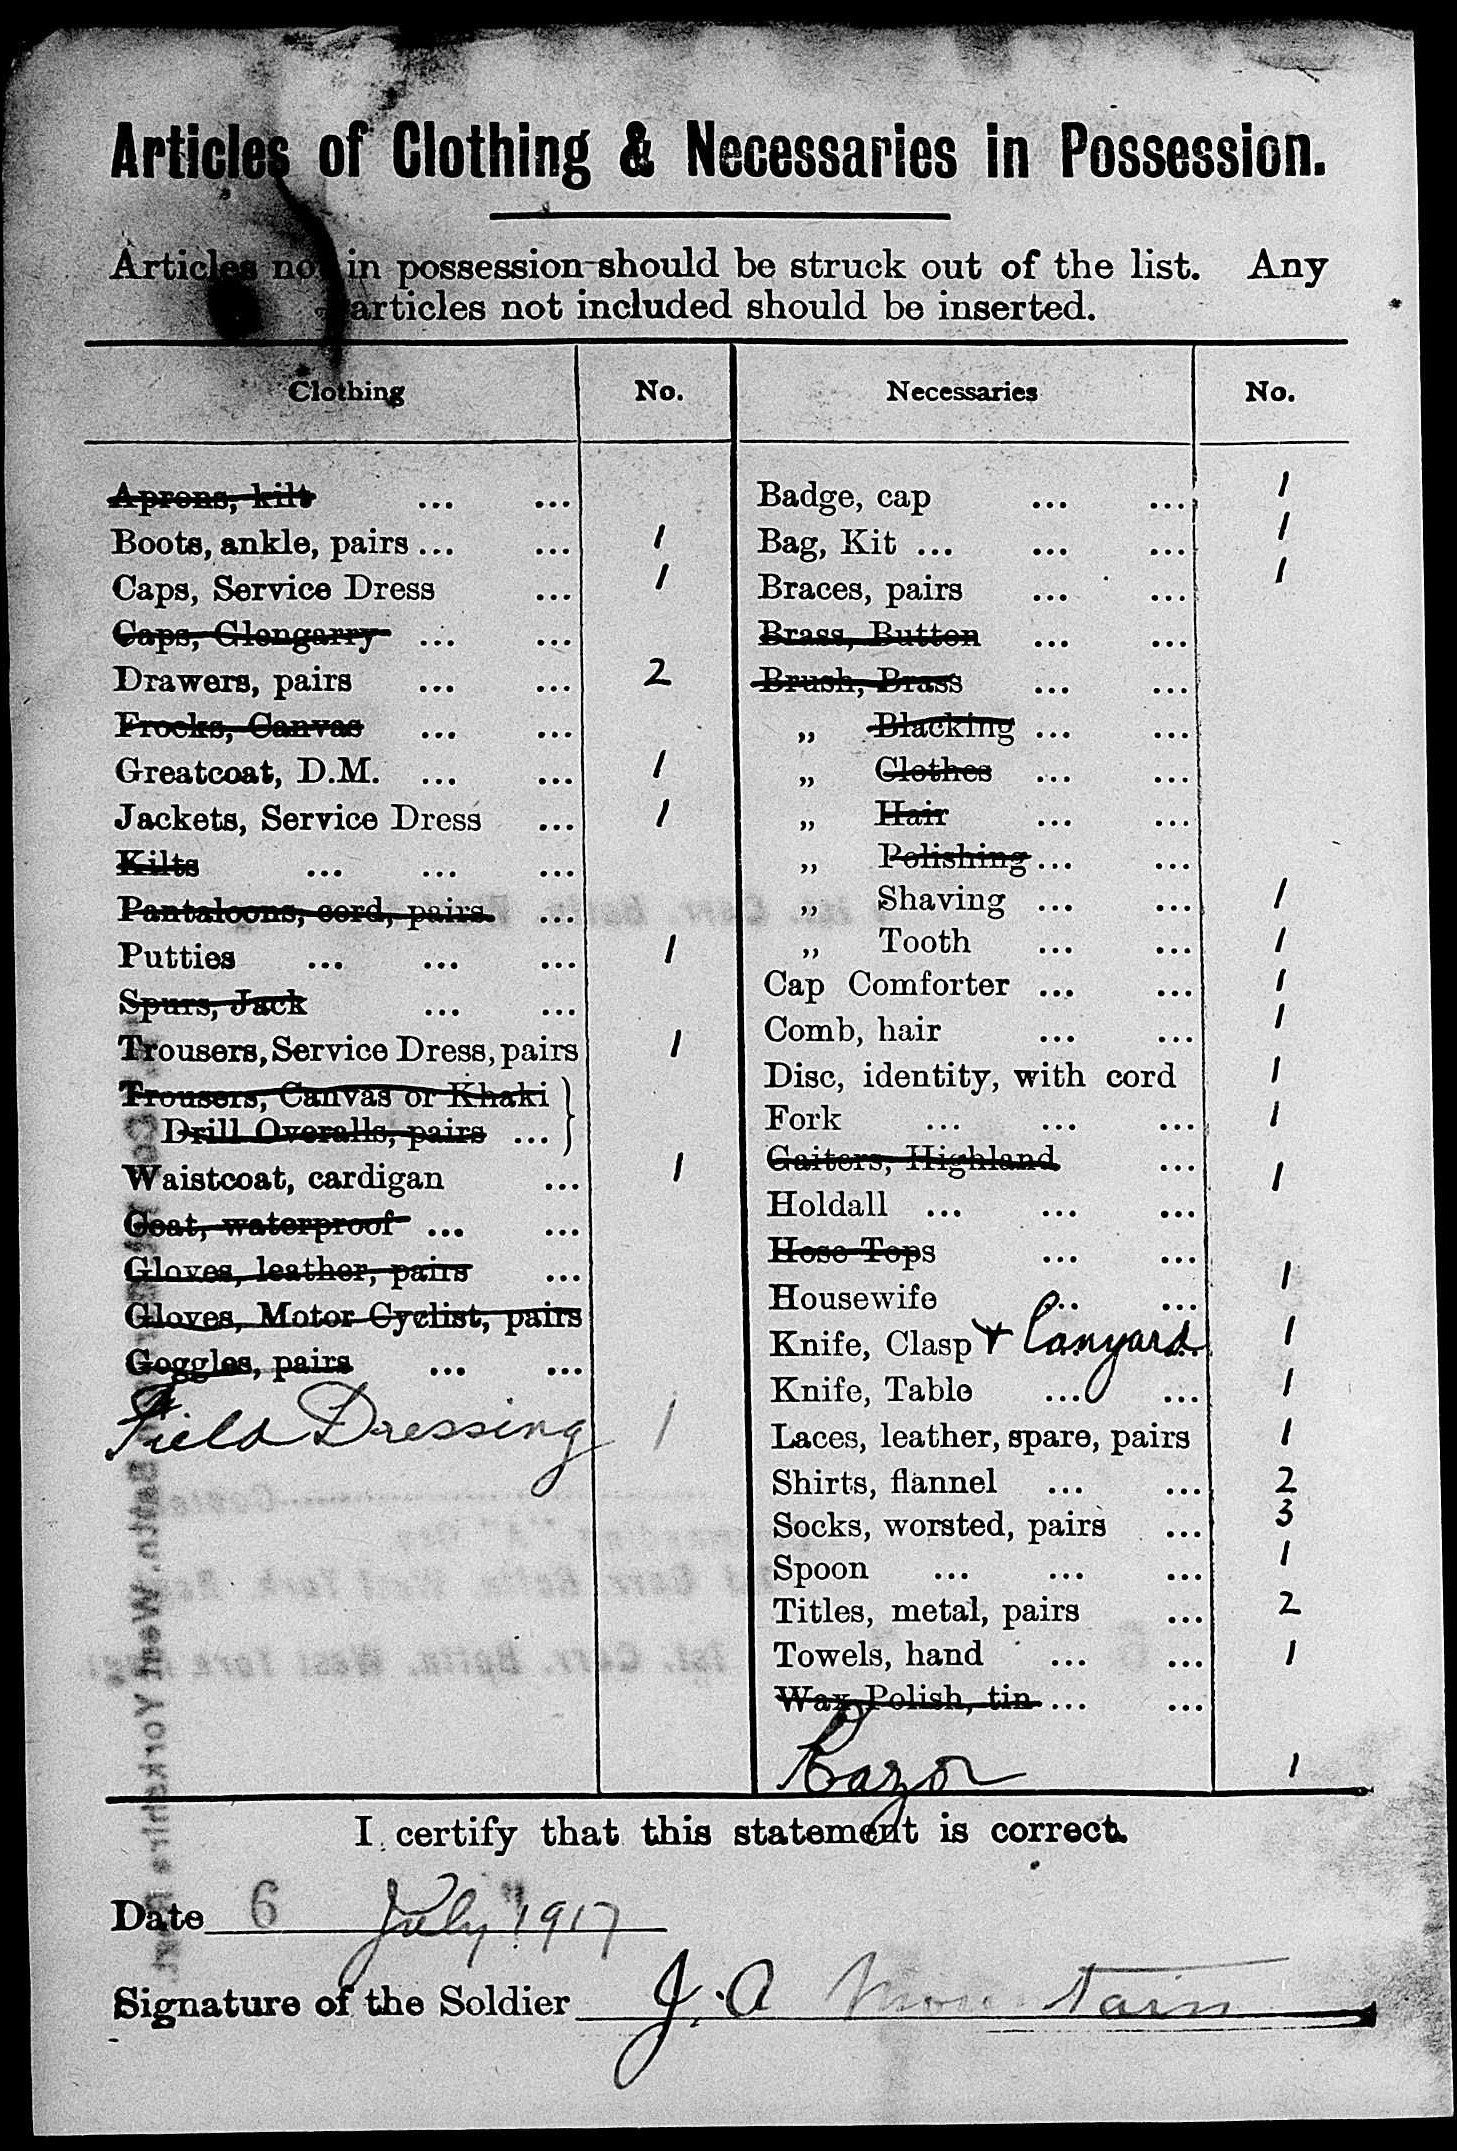 Articles of Clothing & Necessaries in Possession.
Articles not in possession should be struck out of the list. Any
articles not included should be inserted.
Clothing No. Necessaries No.
Aprons, kilt ... ...
Boots, ankle, pairs ... ... 1
Caps, Service Dress ... 1
Caps, Glengarry ... ...
Drawers, pairs ... ... 2
Frocks, Canvas ... ...
Greatcoat, D.M. ... ... 1
Jackets, Service Dress ... 1
Kilts ... ... ...
Pantaloons, cord, pairs. ...
Putties ... ... ... 1
Spurs, Jack ... ...
Trousers, Service Dress, pairs 1
Trousers, Canvas or Khaki }
Drill Overalls, pairs ...
Waistcoat, cardigan ... 1
Coat, waterproof ... ...
Gloves, leather, pairs ...
Gloves, Motor Cyclist, pairs
Goggles, pairs ... ...
Field Dressing 1
Badge, cap ... ... 1
Bag, Kit ... ... ... 1
Braces, pairs ... ... 1
Brass, Button ... ...
Brush, Brass ... ...
„ Blacking ... ...
„ Clothes ... ...
„ Hair ... ...
„ Polishing ... ...
„ Shaving ... ... 1
„ Tooth ... ... 1
Cap Comforter ... ... 1
Comb, hair ... ... 1
Disc, identity, with cord 1
Fork ... ... ... 1
Gaiters, Highland ...
Holdall ... ... ... 1
Hose Tops ... ...
Housewife ... ... 1
Knife, Clasp + Lanyard 1
Knife, Table ... ... 1
Laces, leather, spare, pairs 1
Shirts, flannel ... ... 2
Socks, worsted, pairs ... 3
Spoon ... ... ... 1
Titles, metal, pairs ... 2
Towels, hand ... ... 1
Wax Polish, tin ... ...
Razor 1
I certify that this statement is correct.
Date 6 July 1917
Signature of the Soldier J. A Mountain